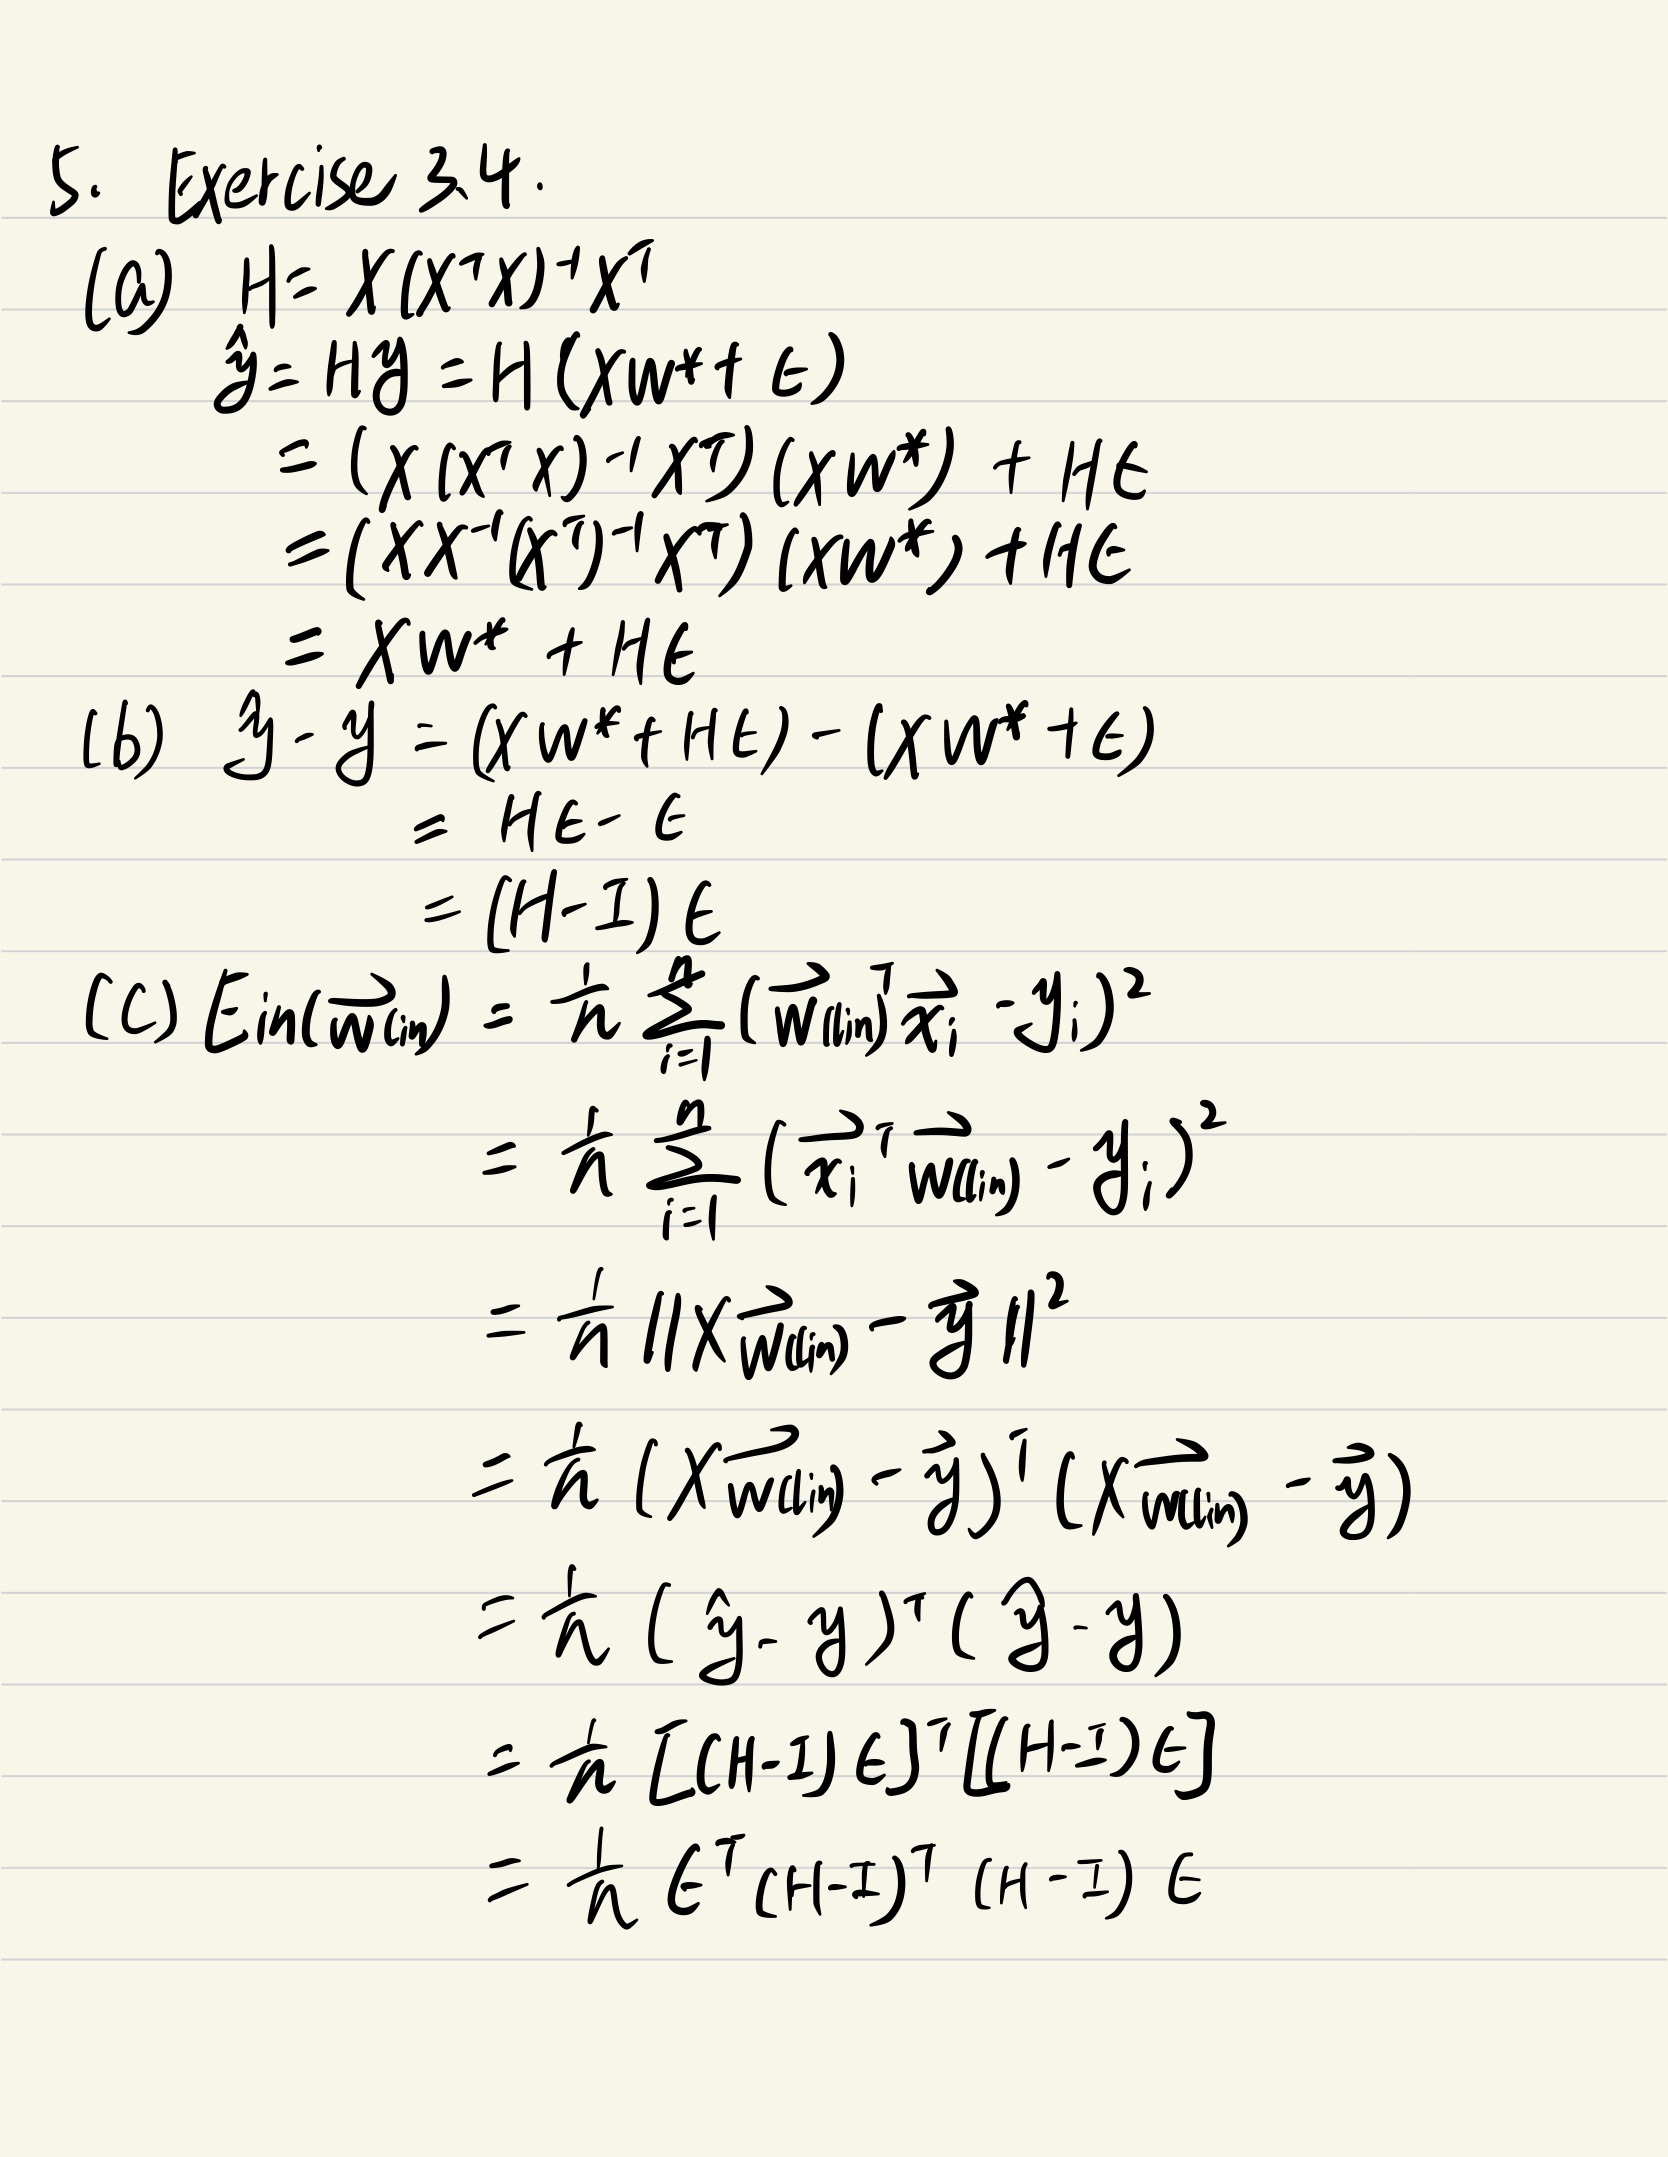 5. Exercise 3.4.
(a) H = X(XᵀX)⁻¹Xᵀ
ŷ = Hy = H(Xw* + ϵ)
= (X(XᵀX)⁻¹Xᵀ)(Xw*) + Hϵ
= (XX⁻¹(Xᵀ)⁻¹Xᵀ)(Xw*) + Hϵ
= Xw* + Hϵ
(b) ŷ - y = (Xw* + Hϵ) - (Xw* + ϵ)
= Hϵ - ϵ
= (H-I)ϵ
(c) Ein(w⃗(lin)) = 1/n Σᵢ₌₁ⁿ (w⃗(lin)ᵀ x⃗ᵢ - yᵢ)²
= 1/n Σᵢ₌₁ⁿ (x⃗ᵢᵀ w⃗(lin) - yᵢ)²
= 1/n ||X w⃗(lin) - y⃗||²
= 1/n (X w⃗(lin) - y⃗)ᵀ (X w⃗(lin) - y⃗)
= 1/n (ŷ - y)ᵀ (ŷ - y)
= 1/n [(H-I)ϵ]ᵀ [(H-I)ϵ]
= 1/n ϵᵀ (H-I)ᵀ (H-I) ϵ